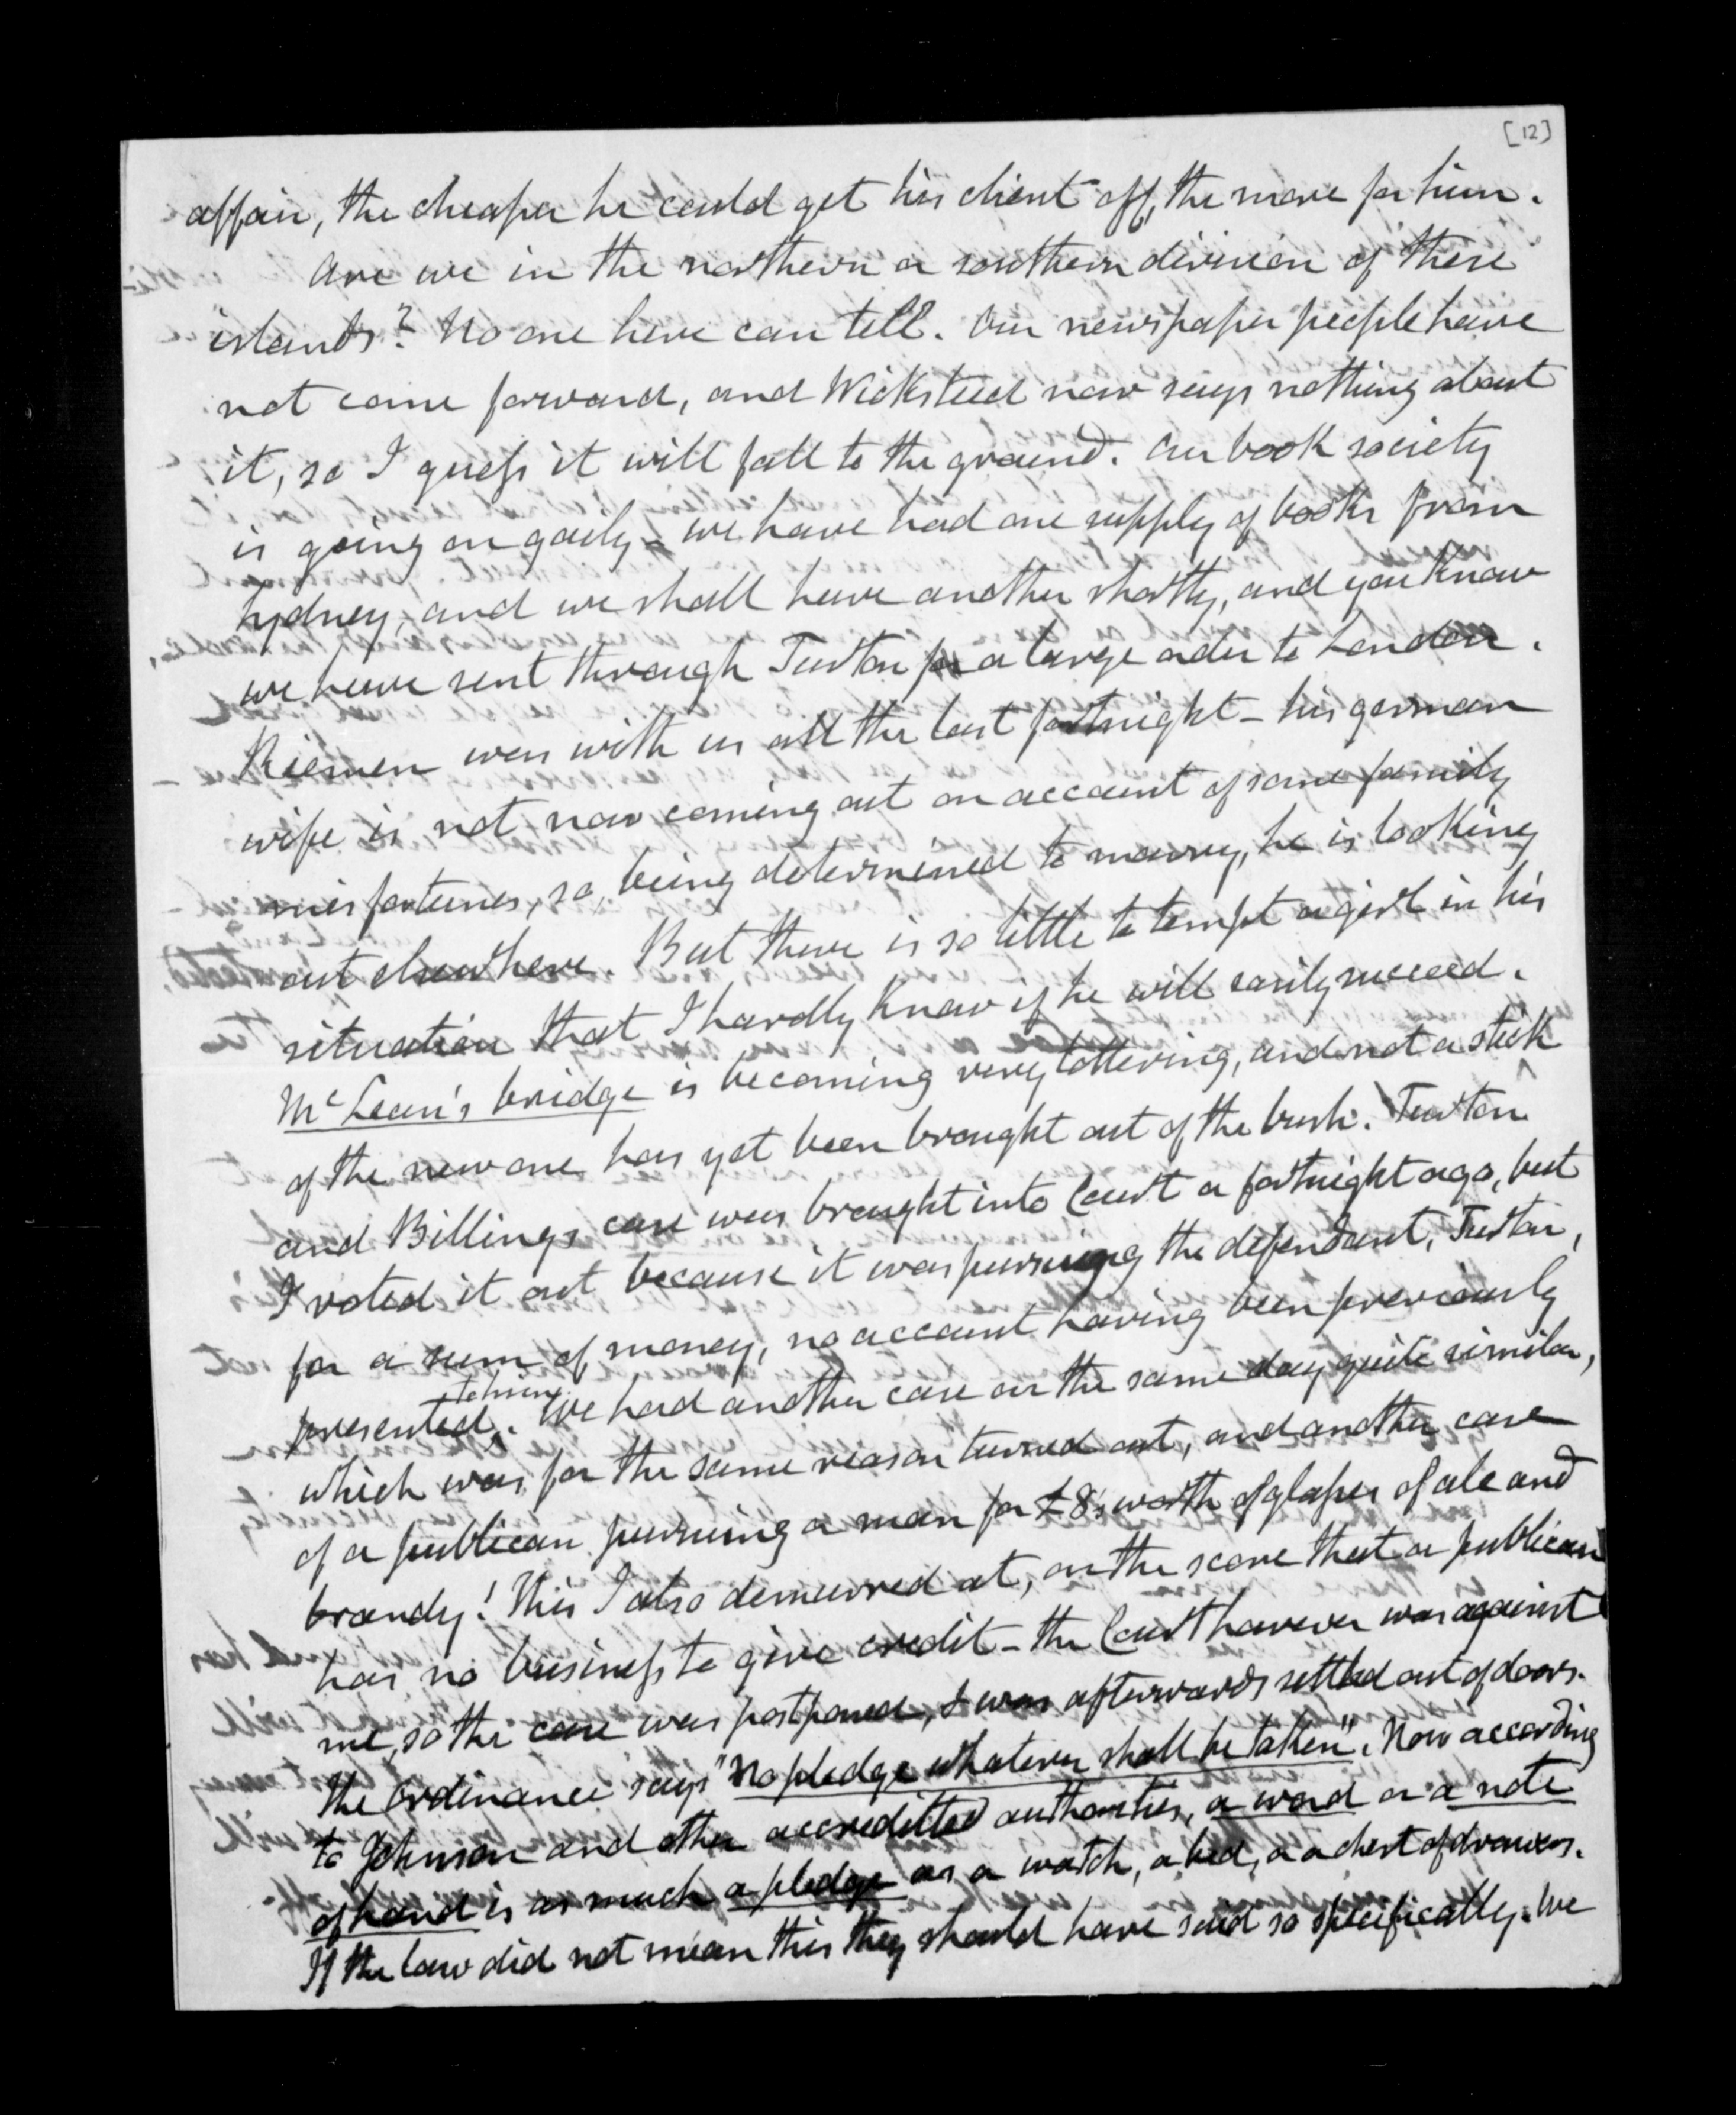 [12]
affair, the cheaper he could get his client off, the more for him.
Are we in the northern or southern division of these
islands? No one here can tell. Our newspaper people have
not come forward, and Wicksteed now says nothing about
it, so I guess it will fall to the ground. Our book society
is going on gaily - we have had one supply of books from
Sydney, and we shall have another shortly, and you know
we have sent through Turton for a large order to London.
Riemen was with us all the last fortnight - his german
wife is not now coming out on account of some family
misfortunes, so, being determined to marry, he is looking
out elsewhere. But there is so little to tempt a girl in his
situation that I hardly know if he will easily succeed.
McLean's bridge is becoming very tottering, and not a stick
of the new one has yet been brought out of the bush. Turton
and Billings case was brought into Court a fortnight ago, but
I voted it out because it was pursuing the defendant, Turton,
for a sum of money, no account having been previously
presented to him. We had another case on the same day quite similar,
which was for the same reason turned out, and another case
of a publican pursuing a man for £8s worth of glasses of ale and
brandy! This I also demurred at, on the score that a publican
has no business to give credit - the Court however was against
me, so the case was postponed, & was afterwards settled out of doors.
The Ordinance says "No pledge whatever shall be taken". Now according
to Johnson and other accredited authorities, a word or a note
of hand is as much a pledge as a watch, a bed, or a chest of drawers.
If the law did not mean this they should have said so specifically. We